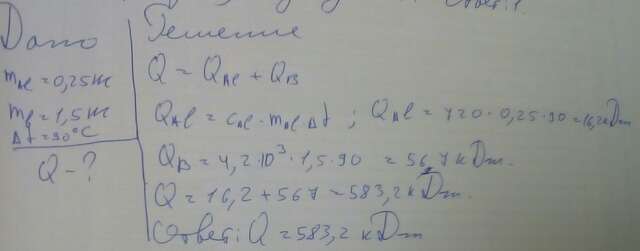 Ответ: 1.
Дано
m Al = 0,25 кг
m в = 1,5 кг
Δt = 90°C
Q - ?
Решение
Q = Q Al + Q в
Q Al = c Al · m Al Δt ; Q Al = 720 · 0,25 · 90 = 16,2 кДж
Q в = 4,2·10³ · 1,5 · 90 = 56,7 кДж.
Q = 16,2 + 567 = 583,2 кДж.
Ответ: Q = 583,2 кДж